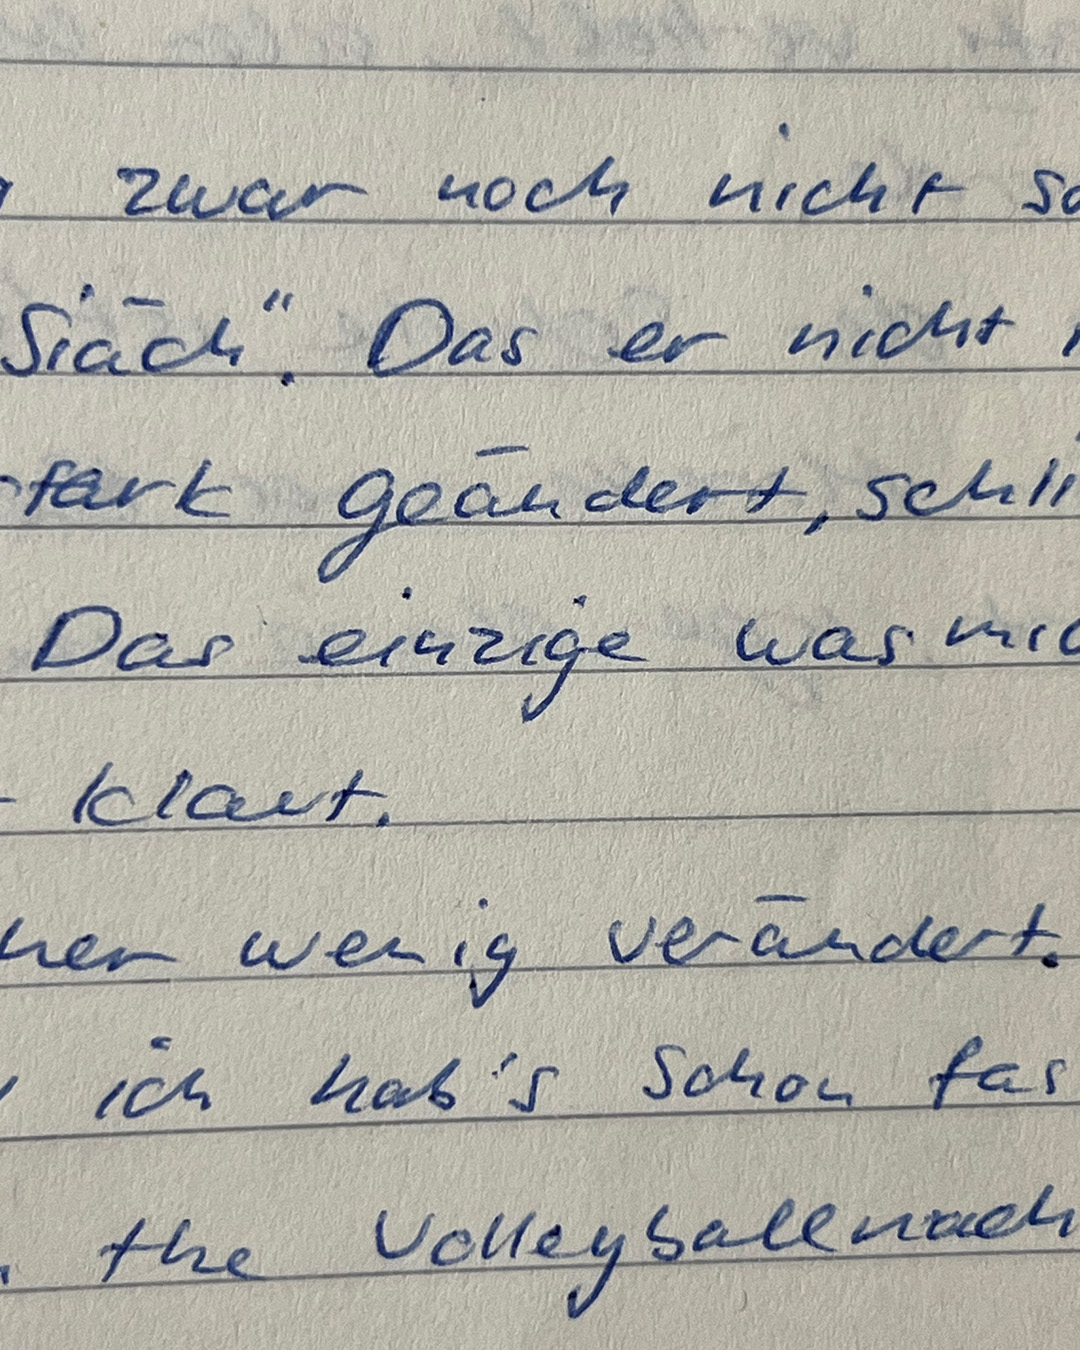 zwar noch nicht
Siäch". Das er nicht
stark geändert, schli
Das einzige was mic
klaut.
wenig verändert.
ich hab's schon fas
the Volleyballnach